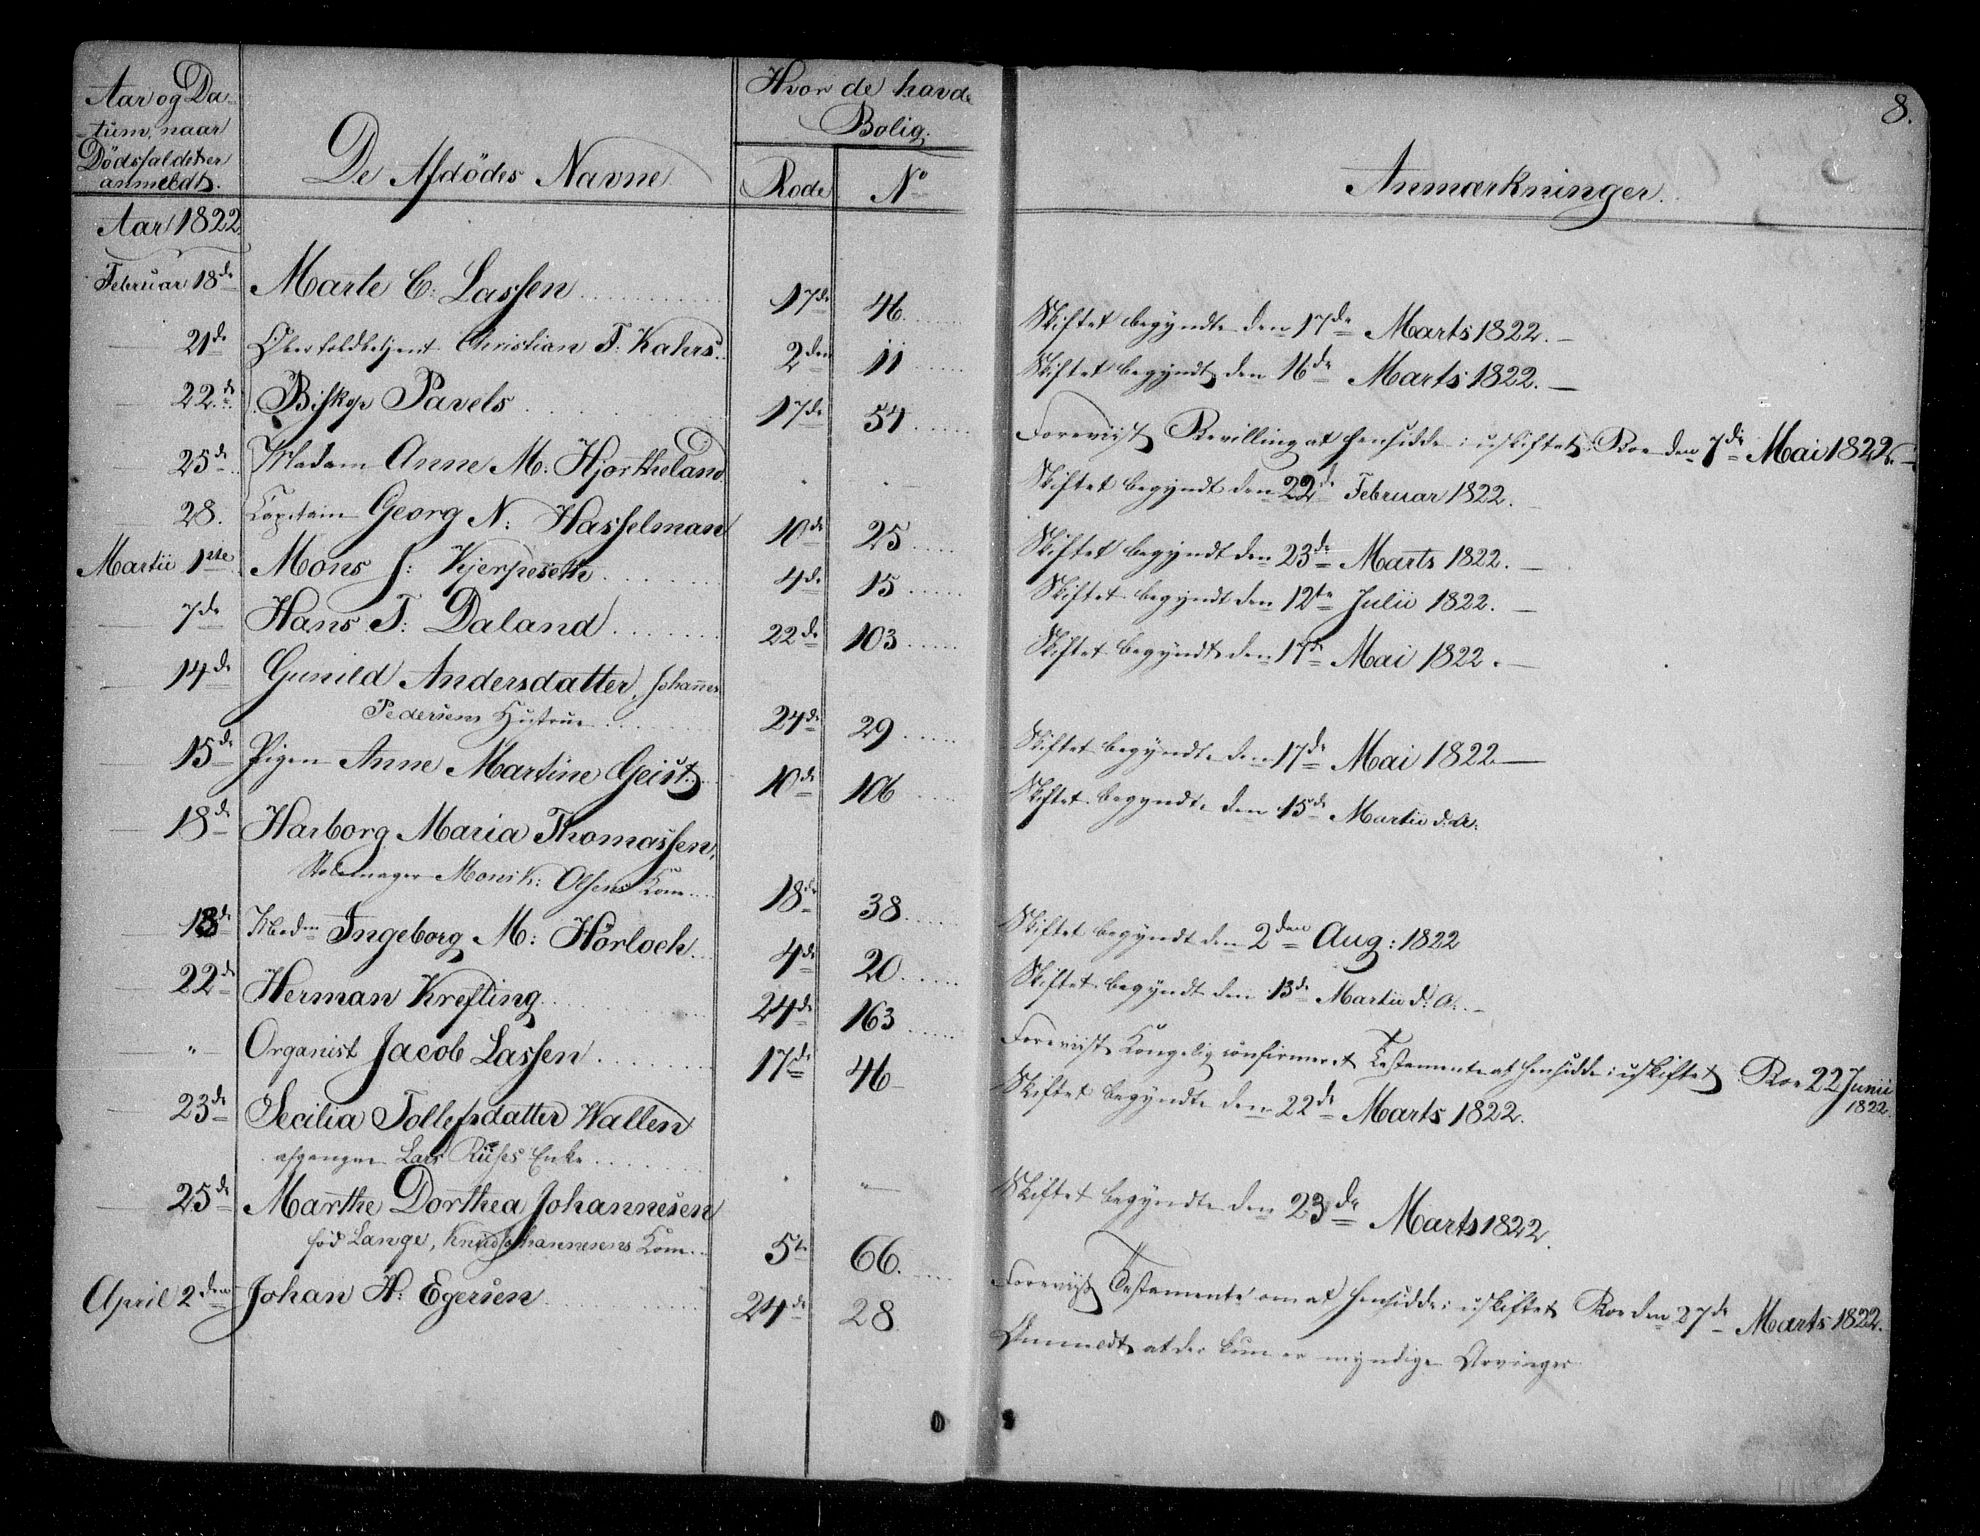 8.
Aar og Da-
-tum, naar
Dödsfaldet er
anmeldt.
De Afdödes Navne
Hvor de havde
Bolig.
Rode
No
Anmærkninger.
Aar 1822
Februar 18de Marte C: Lassen 17de 46 Skiftet begyndte den 17de Marts 1822.
21de Christian F: Kahrs 2den 11 Skiftet begyndt den 16de Marts 1822.
22de Biskop Pavels 17de 54 Foreviist Bevilling at hensidde i uskiftet Boe den 7de Mai 1822.
25de Madam Anne M: Hjortheland " " Skiftet begyndt den 22de Februar 1822.
28. Capitain Georg N: Hasselman 10de 25 Skiftet begyndt den 23de Marts 1822.
Martii 1ste Mons J: Kjerpeseth 4de 15 Skiftet begyndt den 12te Julii 1822.
7de Hans T: Daland 22de 103 Skiftet begyndt den 17de Mai 1822.
14de Gunild Andersdatter, Johannes
Pedersens Hustrue 24de 29 Skiftet begyndte den 17de Mai 1822
15de Pigen Anne Martine Geist 10de 106 Skiftet begyndte den 15de Martii d: A:
18de Harborg Maria Thomassen,
Mons K: Olsens Kone 18de 38 Skiftet begyndt den 2den Aug: 1822
18de Madm Ingeborg M: Hörloch 4de 20 Skiftet begyndt den 13de Martii d: A:
22de Herman Krefting 24de 163 Foreviist Kongelig confirmeret Testamente at hensidde i uskiftet Boe 22 Junii
1822.
" Organist Jacob Lassen 17de 46 Skiftet begyndte den 22de Marts 1822.
23de Secilia Tollefsdatter Wallen
afgangne Lars Enke " " Skiftet begyndte den 23de Marts 1822.
25de Marthe Dorthea Johannesen
föd Lange, Knud Johannesens Kone 5te 66. Foreviist Testamente om at hensidde i uskiftet Boe den 27de Marts 1822.
April 2den Johan H: Egersen 24de 28 Anmeldt at der kun er myndige Arvinger